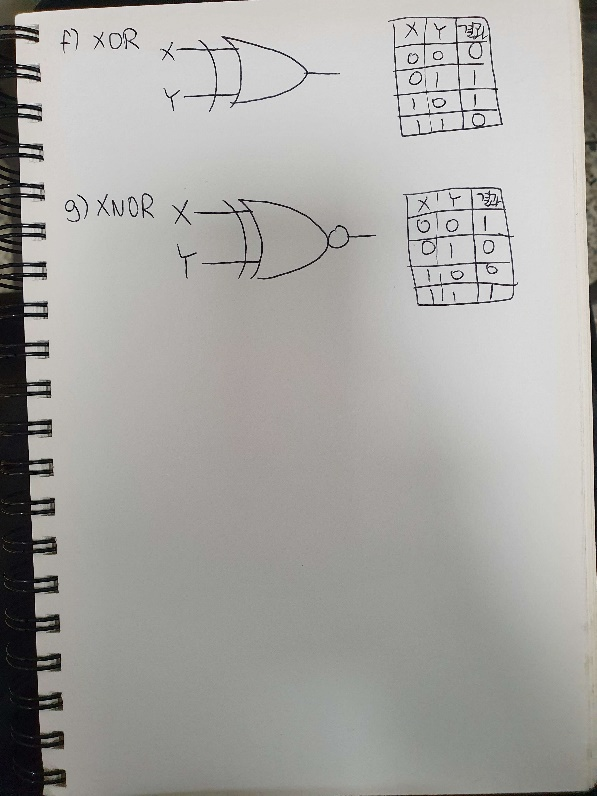 f) XOR
X
Y
X Y
0 0 0
0 1 1
1 0 1
1 1 0
g) XNOR
X
Y
X Y
0 0 1
0 1 0
1 0 0
1 1 1